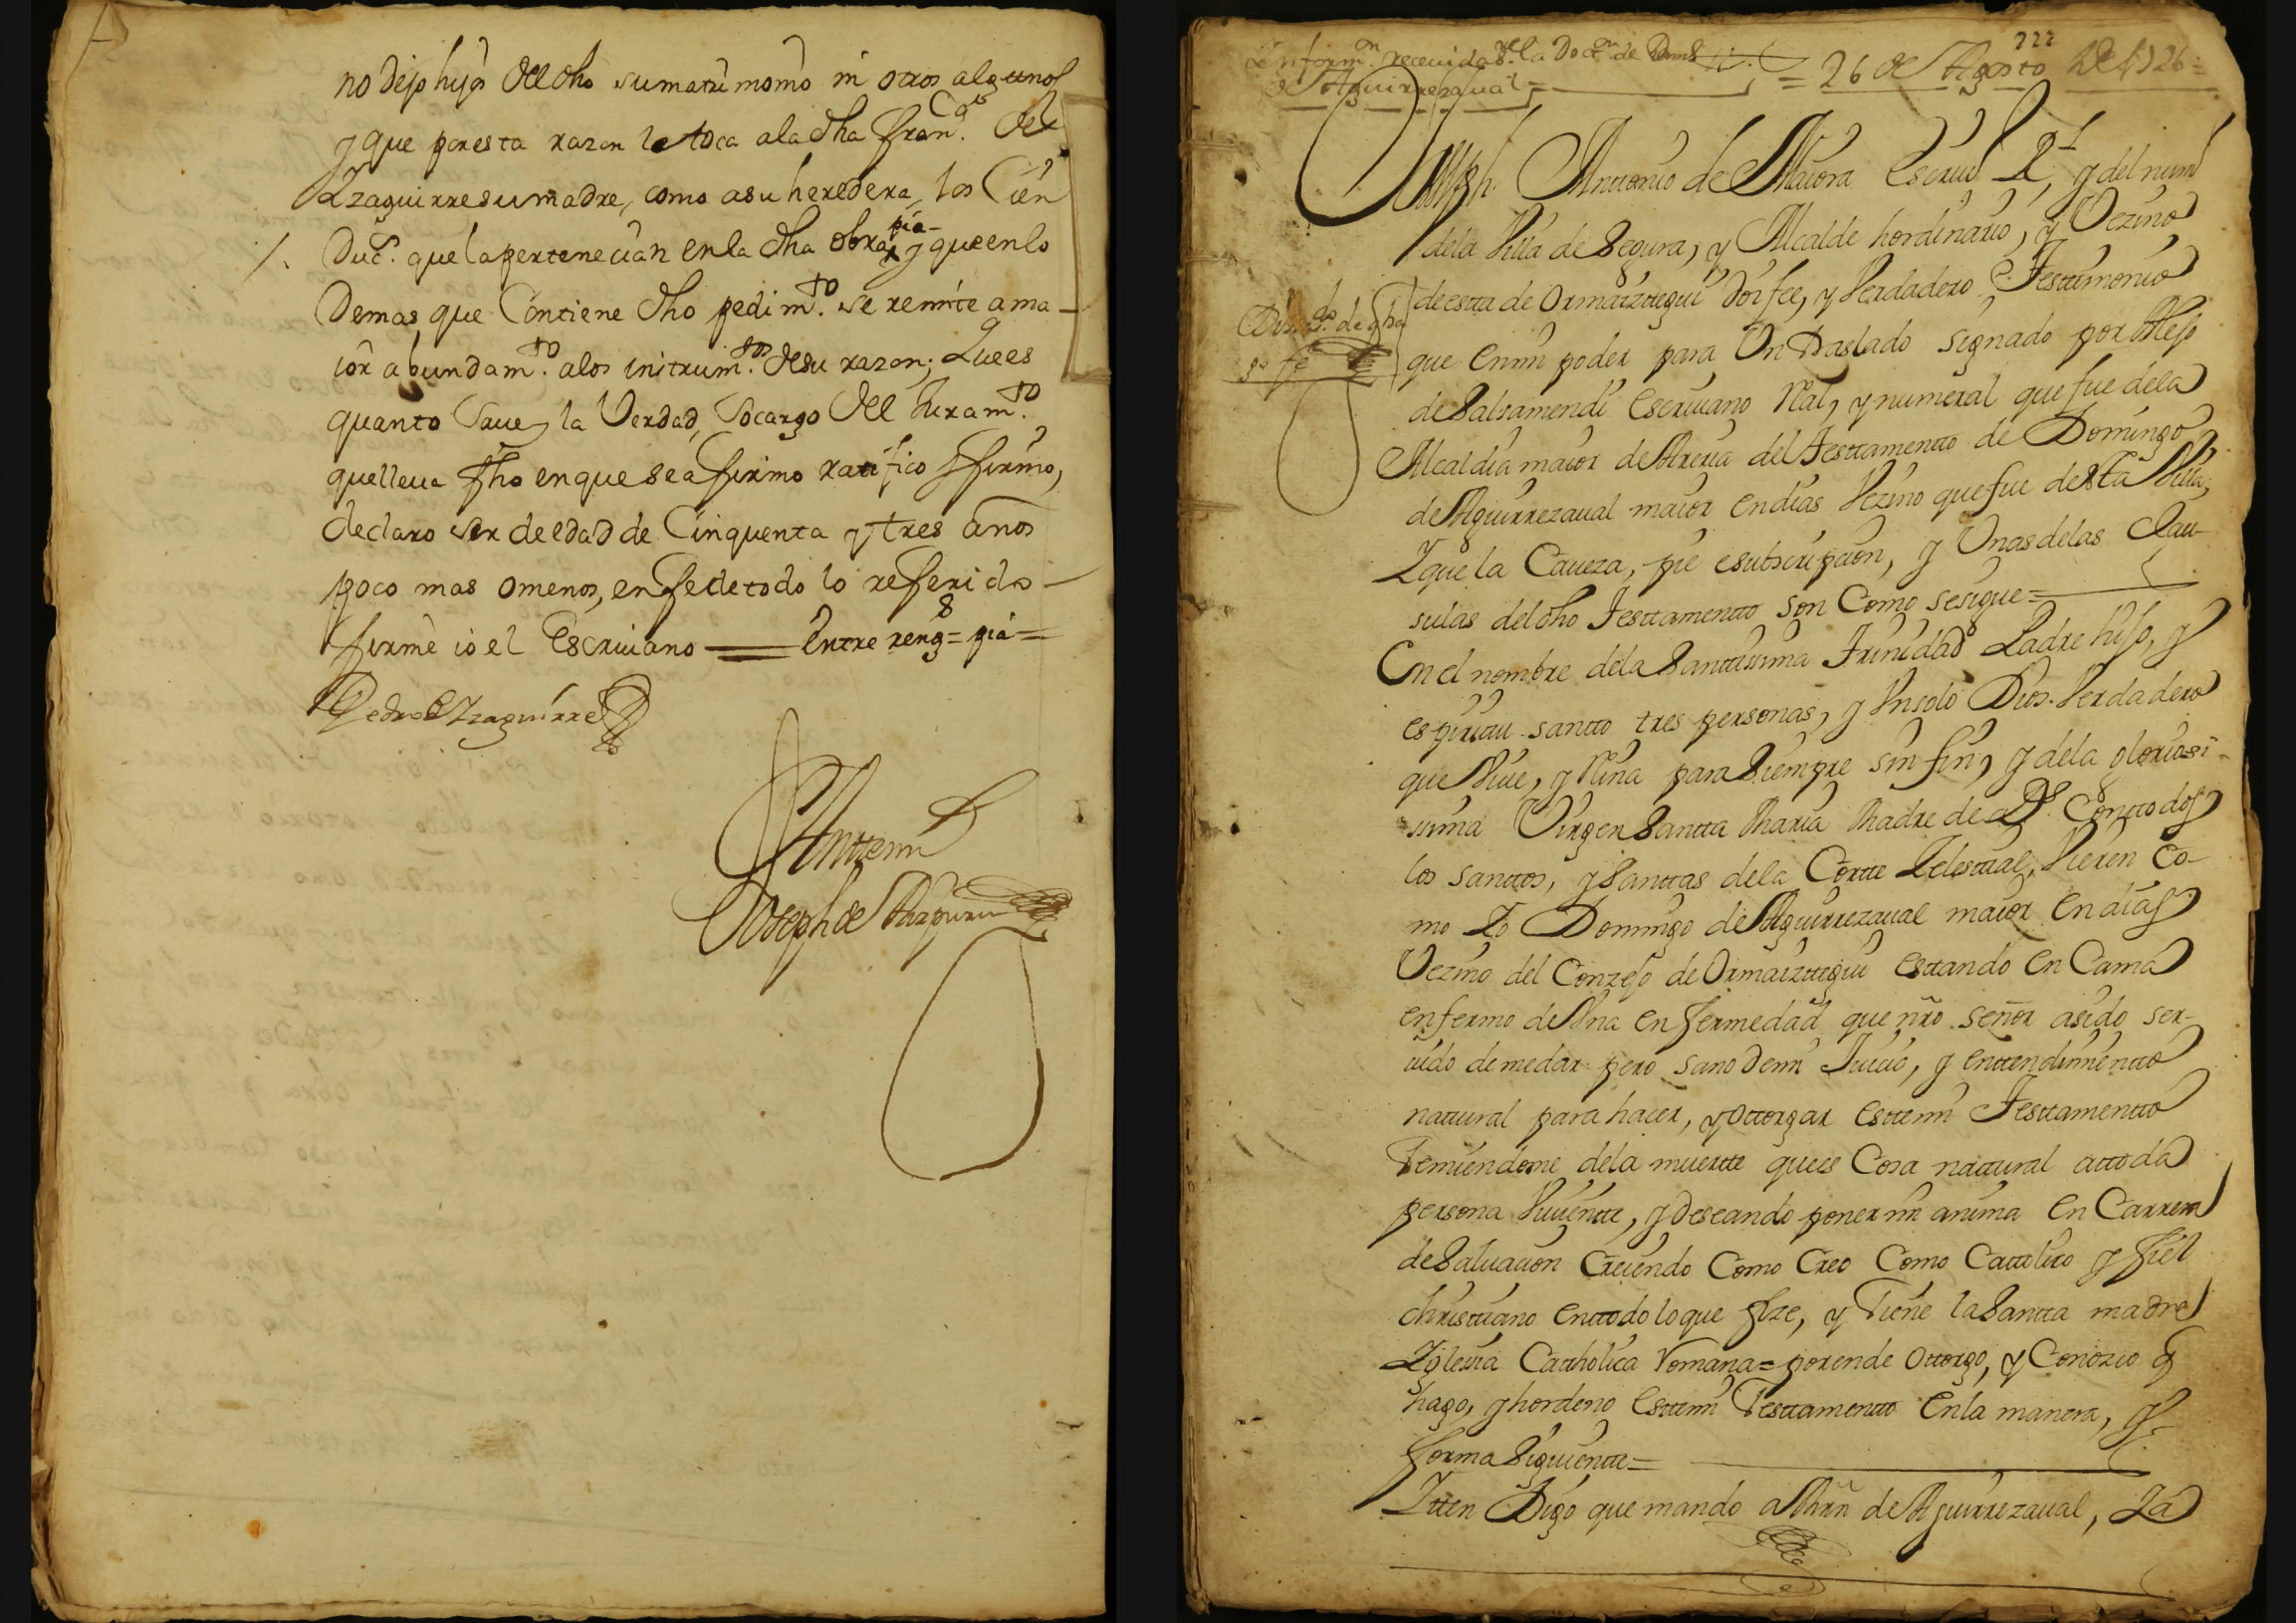 no dejo hijos del dho su matrimonio ni otros algunos
y que por esta razon le toca a la dha Fran.ca de
Yzaguirre su madre, como a su heredera, los Cien
Duc.s que la pertenecian en la dha obra pia y que en lo
Demas que Contiene dho pedim.to se remite a ma-
ior abundam.to a los instrum.tos de su razon; Que es
quanto Saue, la Verdad, Socargo del Juram.to
que lleua fho en que se afirmo ratifico y firmo,
declaro ser de edad de Cinquenta y tres años
poco mas o menos, en fe de todo lo referido
firmè io el Escriuano = Entre reng.s = pia =
Pedro de Yzaguirre
Antemi
Joseph de
222
Inform.on receuida
de Aguirrezaual = 26 de Agosto de 1726 =
Joseph Antonio de Maiora Escriu.o R.l, y del num.o
dela Villa de Segura, y Alcalde hordinario, y Vezino
de esta de Ormaiztegui Doi fee, y Verdadero Testtimonio
que en mi poder para Vn Traslado signado por
de Salsamendi Escriuano Rial, y numeral que fue dela
Alcaldia maior de Areria del Testtamentto de Domingo
de Aguirrezaual maior en dias Vezino que fue desta Villa,
Y que la Caueza, pie e subscripcion, y Vnas delas Clau-
sulas del dho Testtamentto son Como se sigue =
En el nombre dela Santtissima Trinidad Padre hijo, y
espirittu santto tres personas, y Vn solo Dios Verdadero
que Viue, y Reina para Siempre sin fin, y dela gloriosi-
sima Virgen Santta Maria Madre de D.s Con ttodos
los santtos, y Santtas dela Cortte Zelesttial, Vieren Co-
mo Yo Domingo de Aguirrezaual maior en dias
Vezino del Conzejo de Ormaizttegui esttando en Cama
enfermo de Vna enfermedad que nro señor asido ser-
uido de me dar pero sano de mi Juicio, y enttendimientto
nattural para hacer, y ottorgar estte mi Testtamentto
Temiendome dela muertte que es Cosa nattural a ttoda
persona Viuientte, y Deseando poner mi anima en Carrera
de Saluacion Creiendo Como Creo Como Cattolico y fiel
christtiano en ttodo lo que Hze, y Tiene la Santta madre
Yglesia Catthólica Romana = por ende ottorgo, y Conozco q
hago, y hordeno estte mi Testtamentto en la manera, y
forma Siguientte =
Ytten Digo que mando a Mrn de Aguirrezaual, Ya